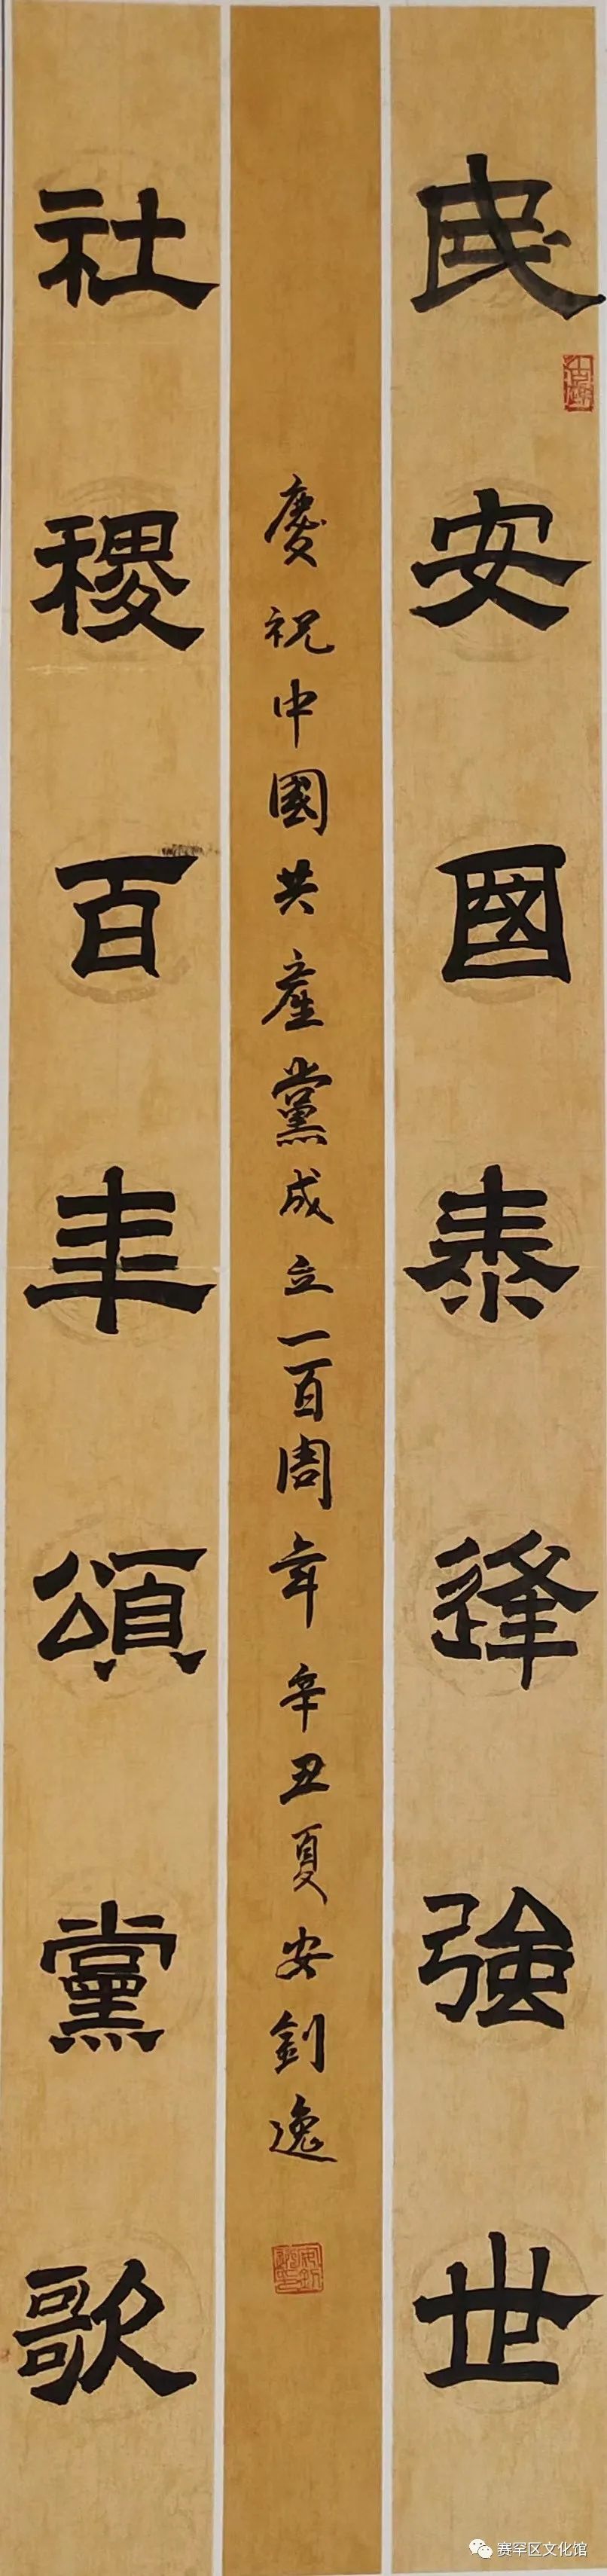 民安國泰逢強世
慶祝中國共產黨成立一百周年辛丑夏安釗逸
社稷百年頌黨歌
赛罕区文化馆